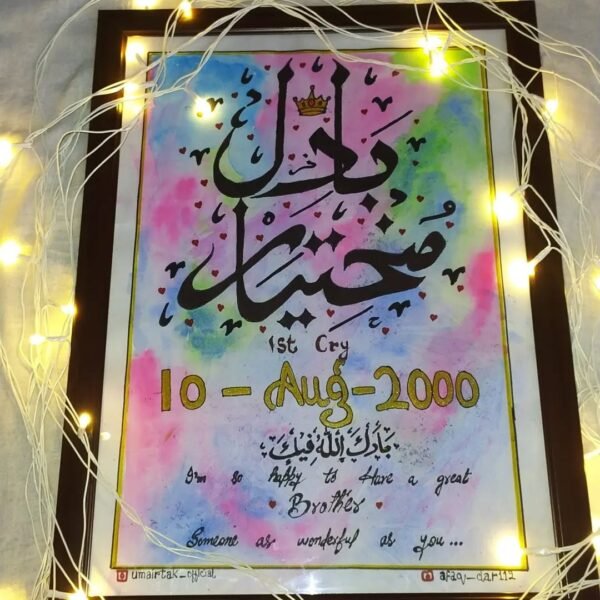 بادل
مختیار
1st Cry
10 - Aug - 2000
بَارَكَ اللهُ فِيْكَ
I'm so happy to Have a great
Brother
Someone as wonderful as you...
umairtak_official
afaq_dar112